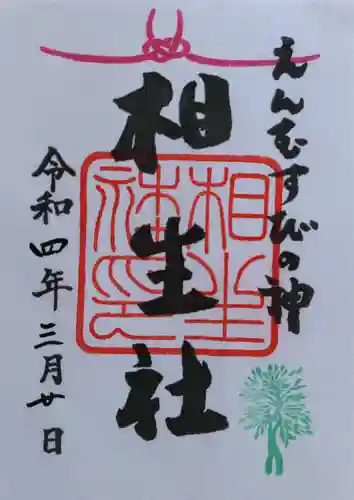 えんむすびの神
相生社
令和四年三月廿日
相生社神印